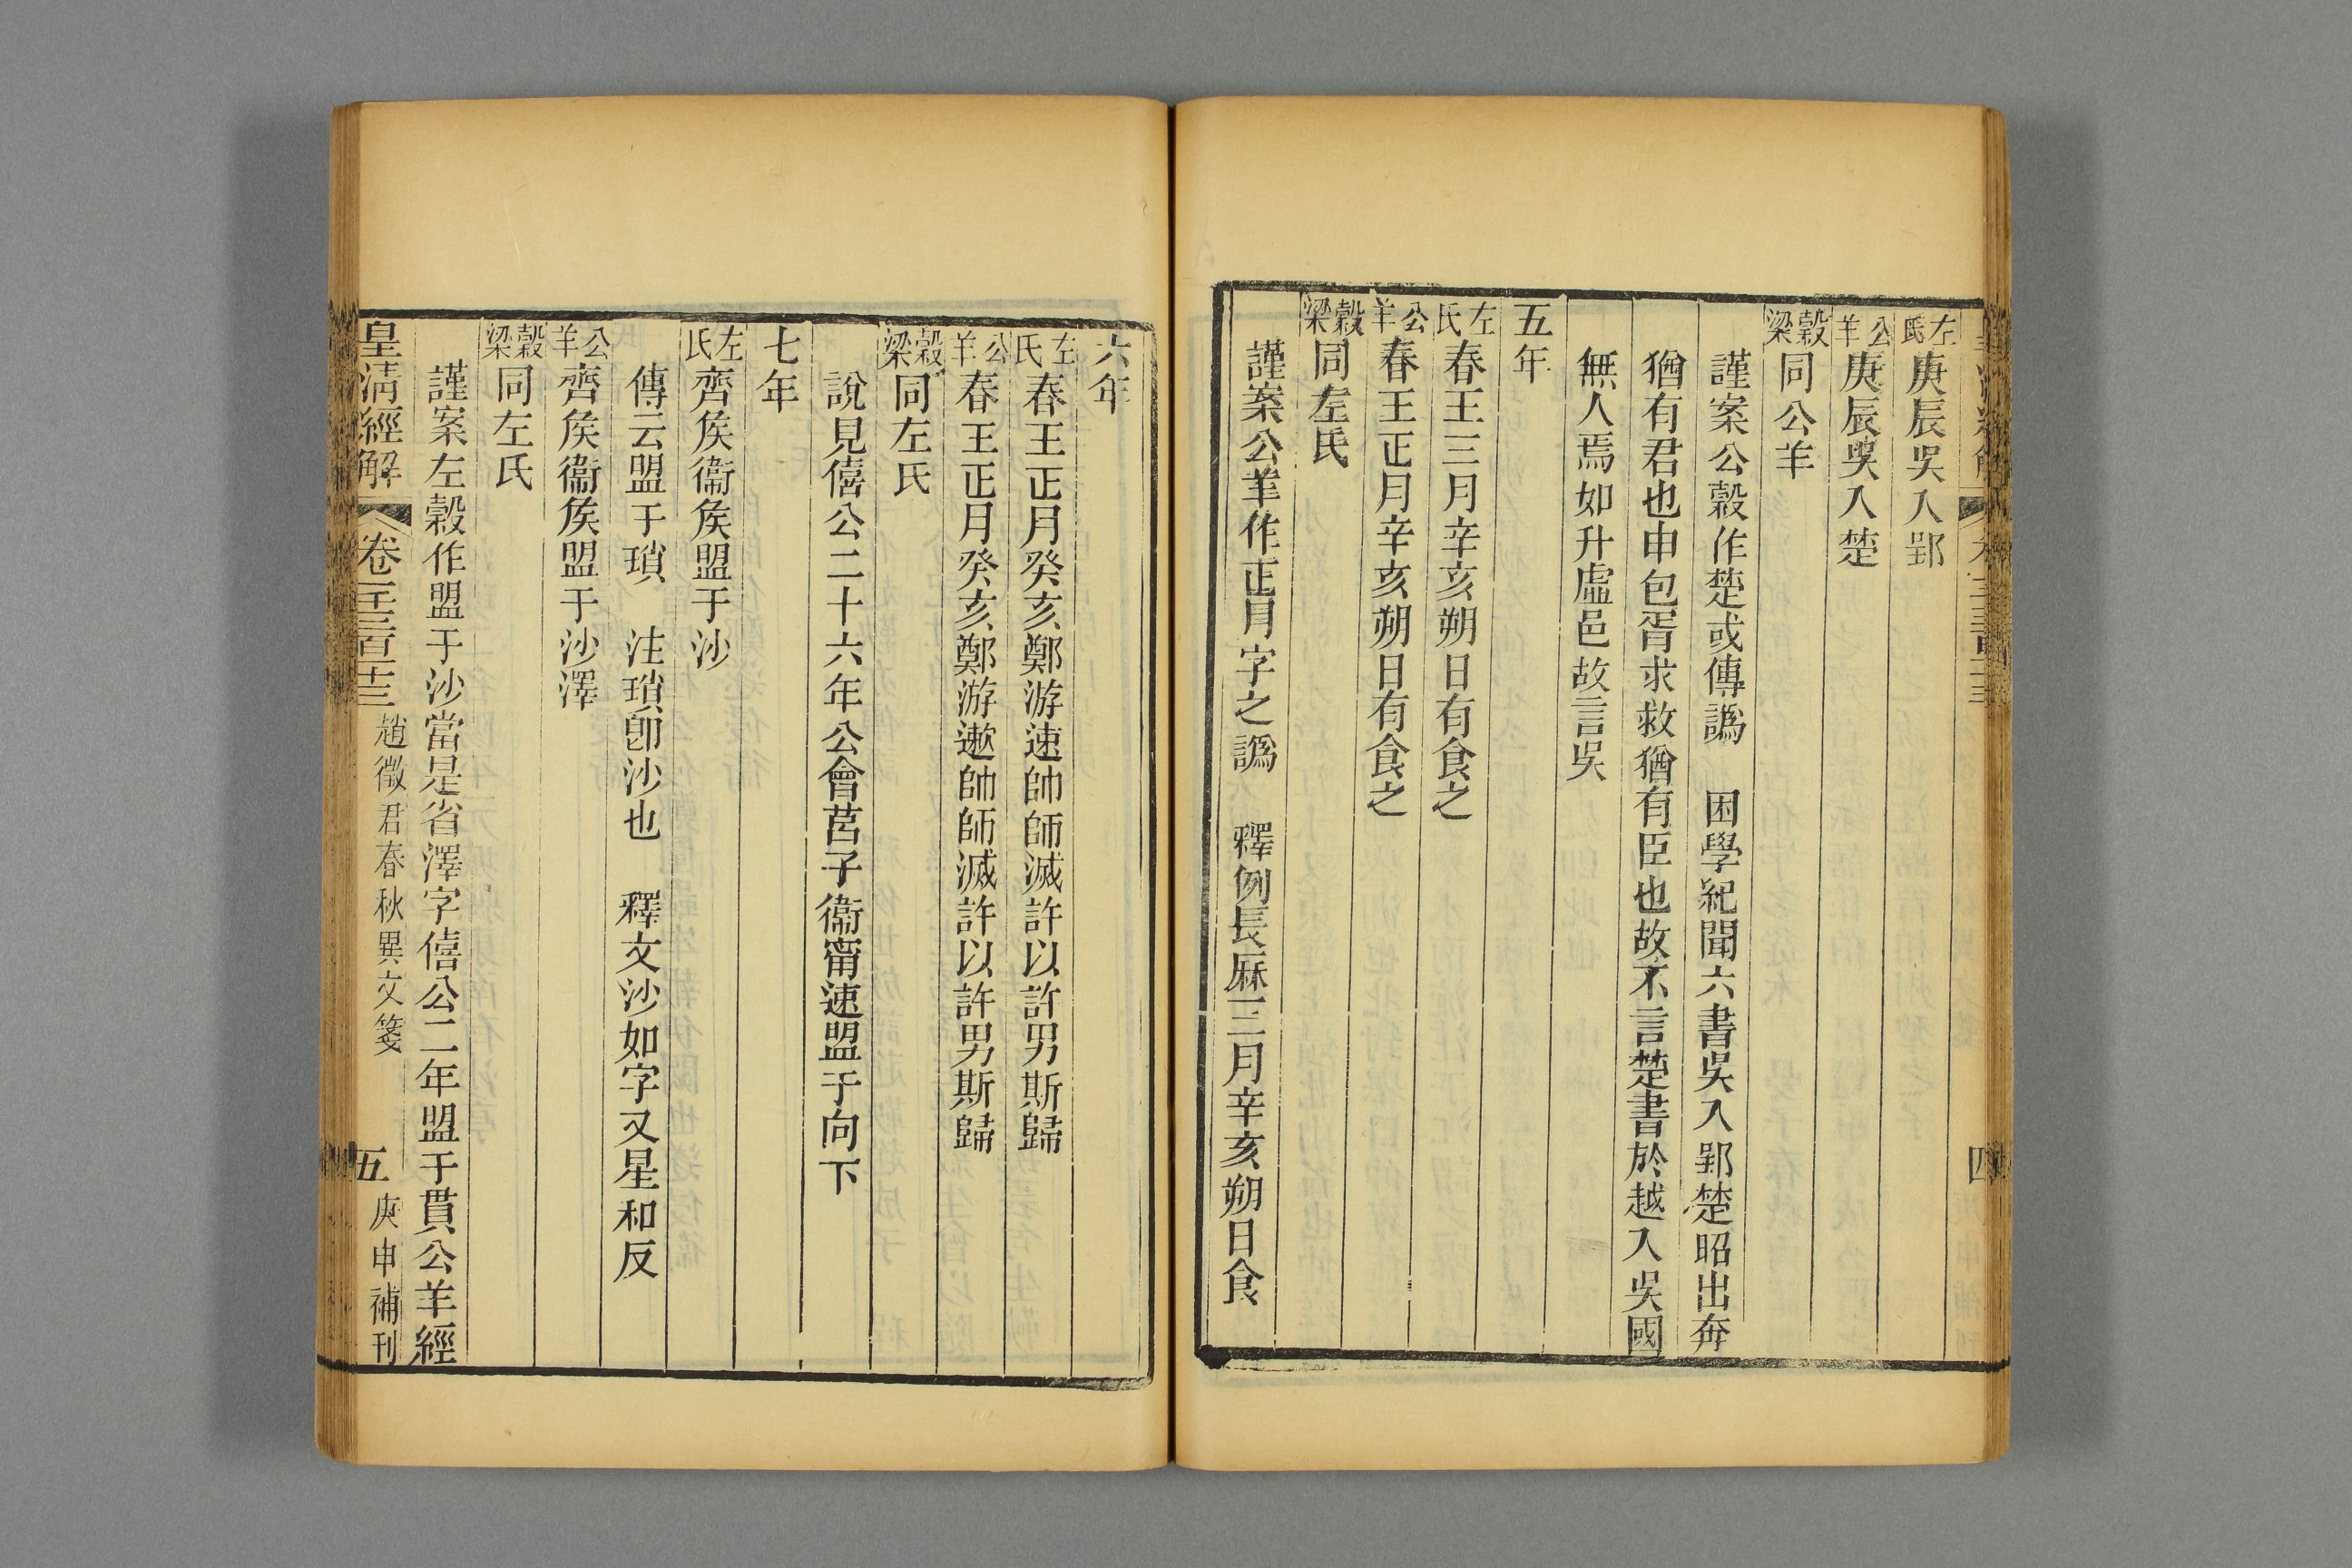 左氏庚辰吳入郢
公羊庚辰吳入楚
穀梁同公羊
謹案公穀作楚或傳譌　困學紀聞六書吳入郢楚昭出奔
猶有君也申包胥求救猶有臣也故不言楚書於越入吳國
無人焉如升虛邑故言吳
五年
左氏春王三月辛亥朔日有食之
公羊春王正月辛亥朔日有食之
穀梁同左氏
謹案公羊作正月字之譌　釋例長厤三月辛亥朔日食
六年
左氏春王正月癸亥鄭游速帥師滅許以許男斯歸
公羊春王正月癸亥鄭游遬帥師滅許以許男斯歸
穀梁同左氏
說見僖公二十六年公會莒子衞甯速盟于向下
七年
左氏齊矦衞矦盟于沙
傳云盟于瑣　注瑣卽沙也　釋文沙如字又星和反
公羊齊矦衞矦盟于沙澤
穀梁同左氏
謹案左穀作盟于沙當是省澤字僖公二年盟于貫公羊經
皇淸經解　卷一千三百十三　趙徵君春秋異文箋　五　庚申補刊